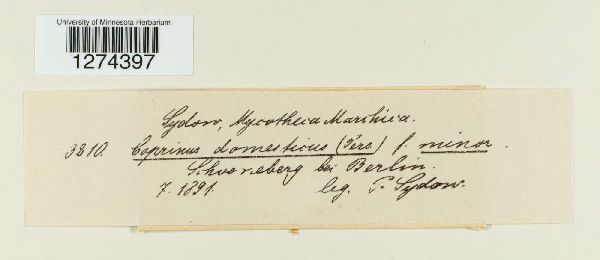 University of Minnesota Herbarium
1274397
Sydow, Mycotheca Marchica.
3310. Coprinus domesticus (Pers.) f. minor.
Schoeneberg bei Berlin.
7.1891. leg. P. Sydow.